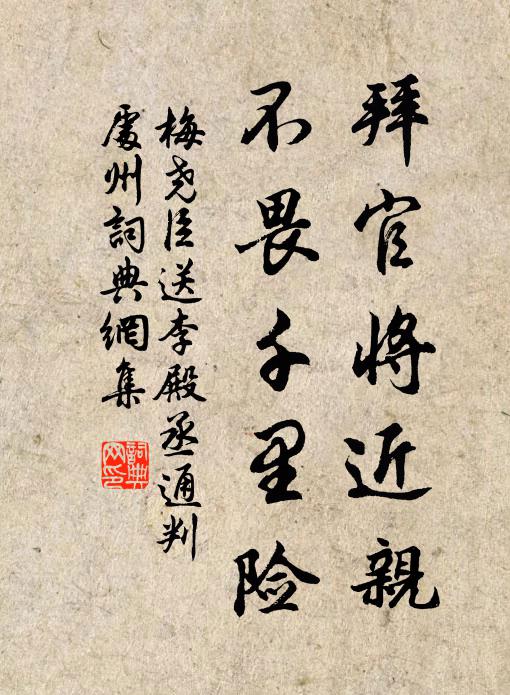 拜官將近親
不畏千里险
梅尧臣送李殿丞通判
處州詞典網集
詞典
网印